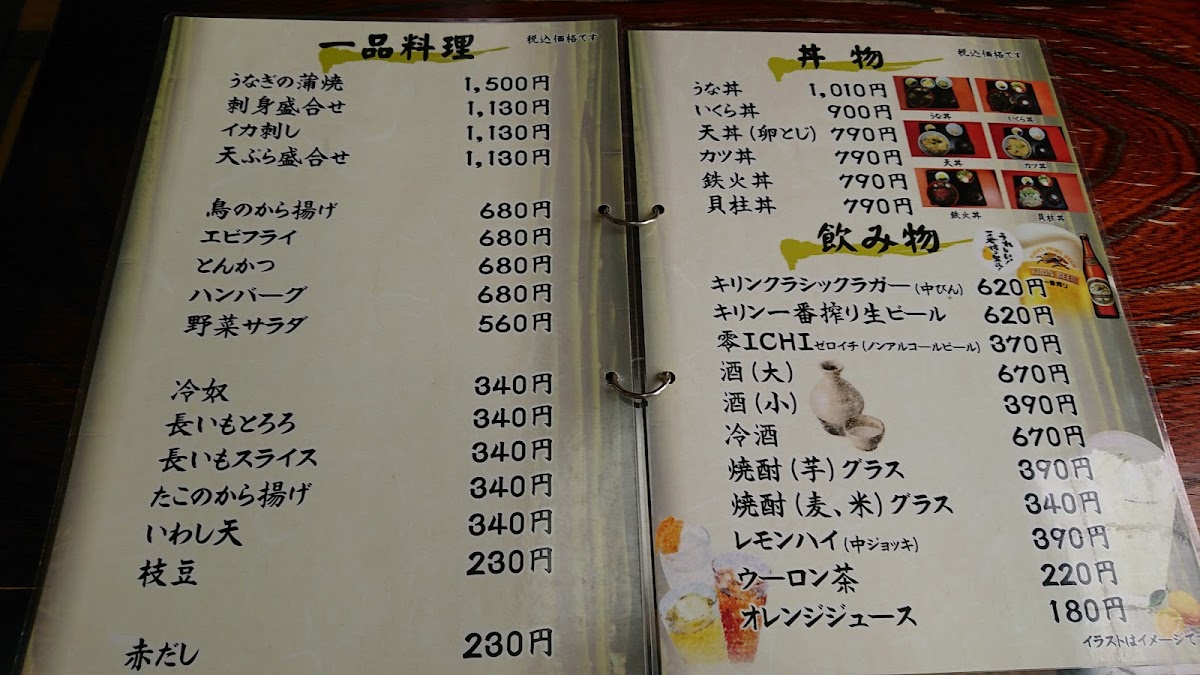 一品料理
税込価格です
うなぎの蒲焼 1,500円
刺身盛合せ 1,130円
イカ刺し 1,130円
天ぷら盛合せ 1,130円
鳥のから揚げ 680円
エビフライ 680円
とんかつ 680円
ハンバーグ 680円
野菜サラダ 560円
冷奴 340円
長いもとろろ 340円
長いもスライス 340円
たこのから揚げ 340円
いわし天 340円
枝豆 230円
赤だし 230円
丼物
税込価格です
うな丼 1,010円
いくら丼 900円
天丼(卵とじ) 790円
カツ丼 790円
鉄火丼 790円
貝柱丼 790円
うな丼 いくら丼
天丼 カツ丼
鉄火丼 貝柱丼
飲み物
キリンクラシックラガー(中びん) 620円
キリン一番搾り生ビール 620円
零ICHIゼロイチ(ノンアルコールビール) 370円
酒(大) 670円
酒(小) 390円
冷酒 670円
焼酎(芋)グラス 390円
焼酎(麦、米)グラス 340円
レモンハイ(中ジョッキ) 390円
ウーロン茶 220円
オレンジジュース 180円
イラストはイメージで
KIRIN BEER
一番搾り